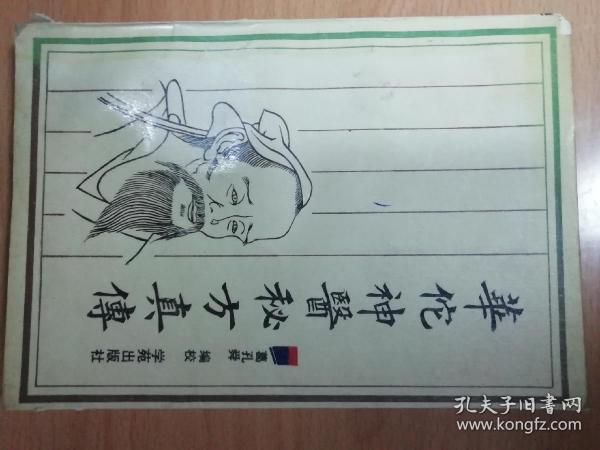 華佗神醫秘方真傳
葛孔舜 编校 学苑出版社
孔夫子旧书网
www.kongfz.com